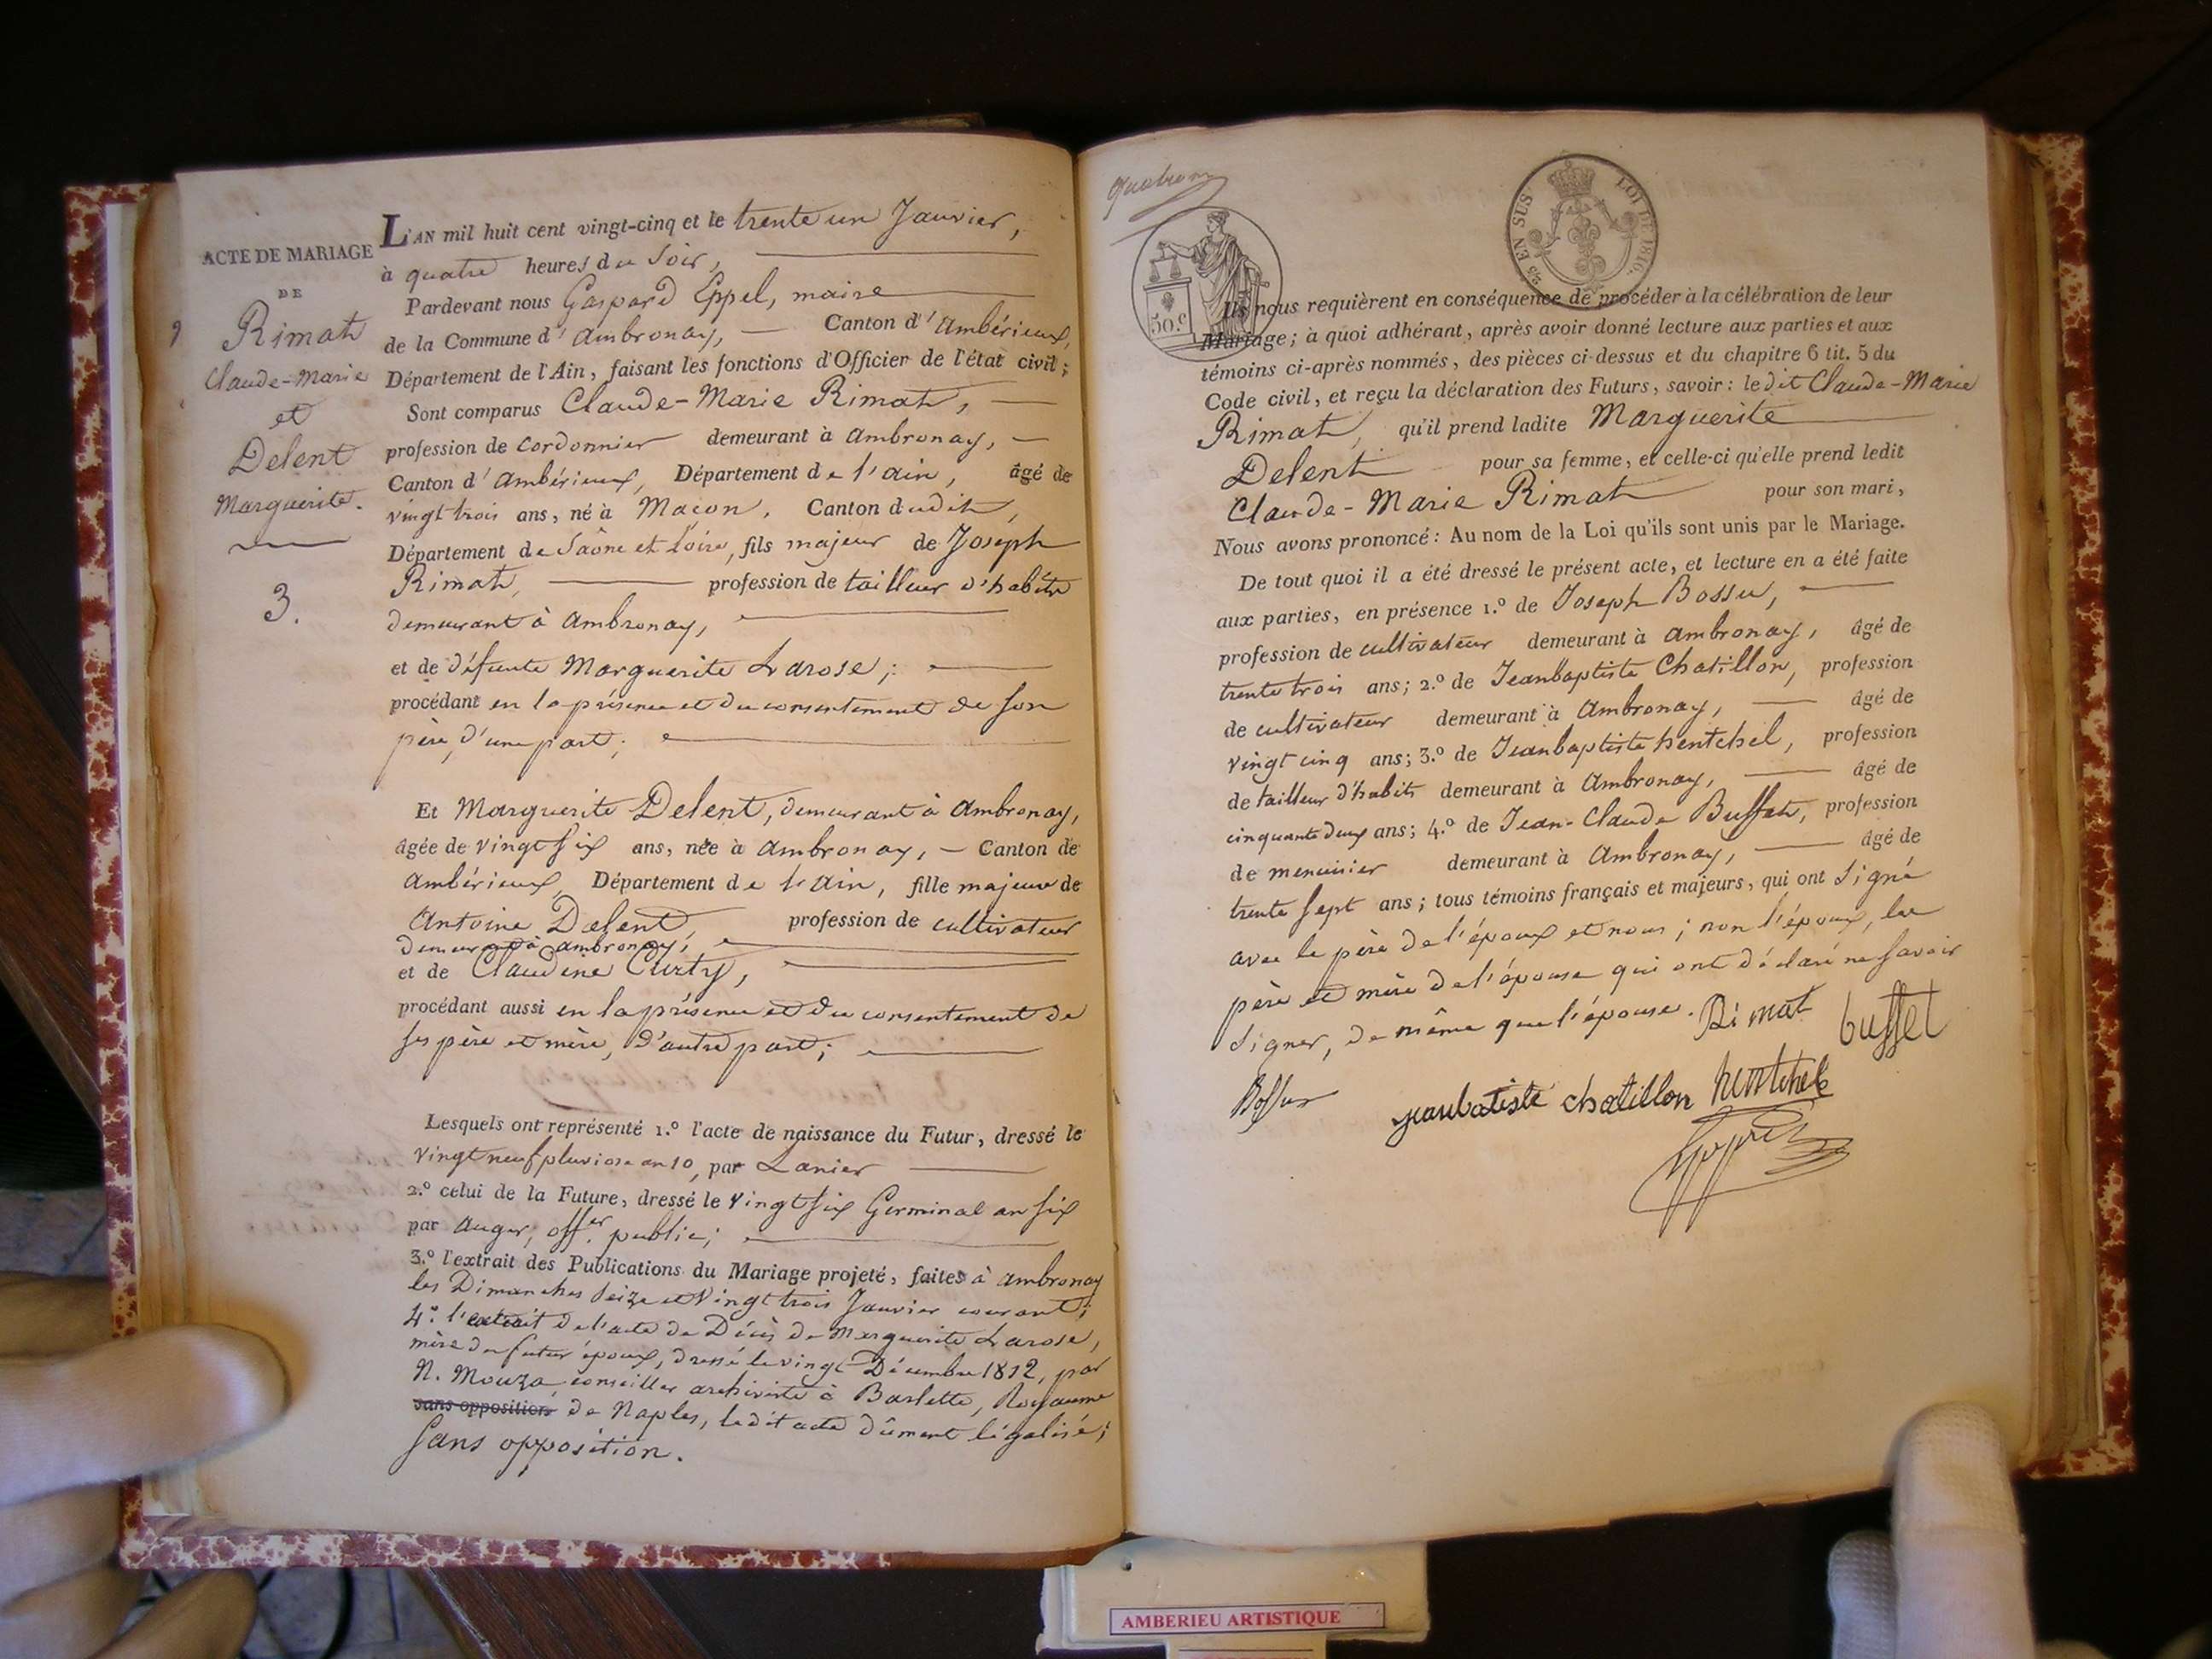 ACTE DE MARIAGE
DE
Rimat
Claude-Marie
et
Delent
Marguerite.
3.
L'AN mil huit cent vingt-cinq et le trente un Janvier,
à quatre heures du Soir,
Pardevant nous Gaspard Eppel, maire
de la Commune d'Ambronay, Canton d'Ambérieux,
Département de l'Ain, faisant les fonctions d'Officier de l'état civil;
Sont comparus Claude-Marie Rimat,
profession de cordonnier demeurant à Ambronay,
Canton d'Ambérieux, Département de l'ain, âgé de
vingt trois ans, né à Macon, Canton dudit,
Département de Saône et Loire, fils majeur de Joseph
Rimat, profession de tailleur d'habits
demeurant à Ambronay,
et de défunte Marguerite Larose;
procédant en la présence et du consentement de son
père, d'une part;
Et Marguerite Delent, demeurant à Ambronay,
âgée de vingt six ans, née à Ambronay, Canton de
Ambérieux, Département de l'Ain, fille majeure de
Antoine Delent, profession de cultivateur
demeurant à ambronay,
et de Claudine Curty,
procédant aussi en la présence et du consentement de
ses père et mère, d'autre part;
Lesquels ont représenté 1.º l'acte de naissance du Futur, dressé le
vingt neuf pluviose an 10, par Lanier
2.º celui de la Future, dressé le vingt six Germinal an six
par Auger, off.er public;
3.º l'extrait des Publications du Mariage projeté, faites à Ambronay
les Dimanches seize et vingt trois Janvier courant;
4.º l'extrait de l'acte de Décès de Marguerite Larose,
mère du futur époux, dressé le vingt Décembre 1812, par
N. Mouza, conseiller archiviste à Barlette, Royaume
sans opposition de Naples, ledit acte dûment légalisé;
sans opposition.
50.c
25 EN SUS LOI DE 1816.
Ils nous requièrent en conséquence de procéder à la célébration de leur
Mariage; à quoi adhérant, après avoir donné lecture aux parties et aux
témoins ci-après nommés, des pièces ci-dessus et du chapitre 6 tit. 5 du
Code civil, et reçu la déclaration des Futurs, savoir: ledit Claude-Marie
Rimat, qu'il prend ladite Marguerite
Delent pour sa femme, et celle-ci qu'elle prend ledit
Claude-Marie Rimat pour son mari,
Nous avons prononcé: Au nom de la Loi qu'ils sont unis par le Mariage.
De tout quoi il a été dressé le présent acte, et lecture en a été faite
aux parties, en présence 1.º de Joseph Bossu,
profession de cultivateur demeurant à Ambronay, âgé de
trente trois ans; 2.º de Jeanbaptiste Chatillon, profession
de cultivateur demeurant à Ambronay, âgé de
vingt cinq ans; 3.º de Jeanbaptiste hentchel, profession
de tailleur d'habits demeurant à Ambronay, âgé de
cinquante deux ans; 4.º de Jean-Claude Buffet, profession
de menuisier demeurant à Ambronay, âgé de
trente sept ans; tous témoins français et majeurs, qui ont signé
avec le père de l'époux et nous; non l'époux, les
père et mère de l'épouse qui ont déclaré ne savoir
signer, de même que l'épouse. Rimat buffet
Bossu jeanbatiste chatillon hentchel
AMBERIEU ARTISTIQUE